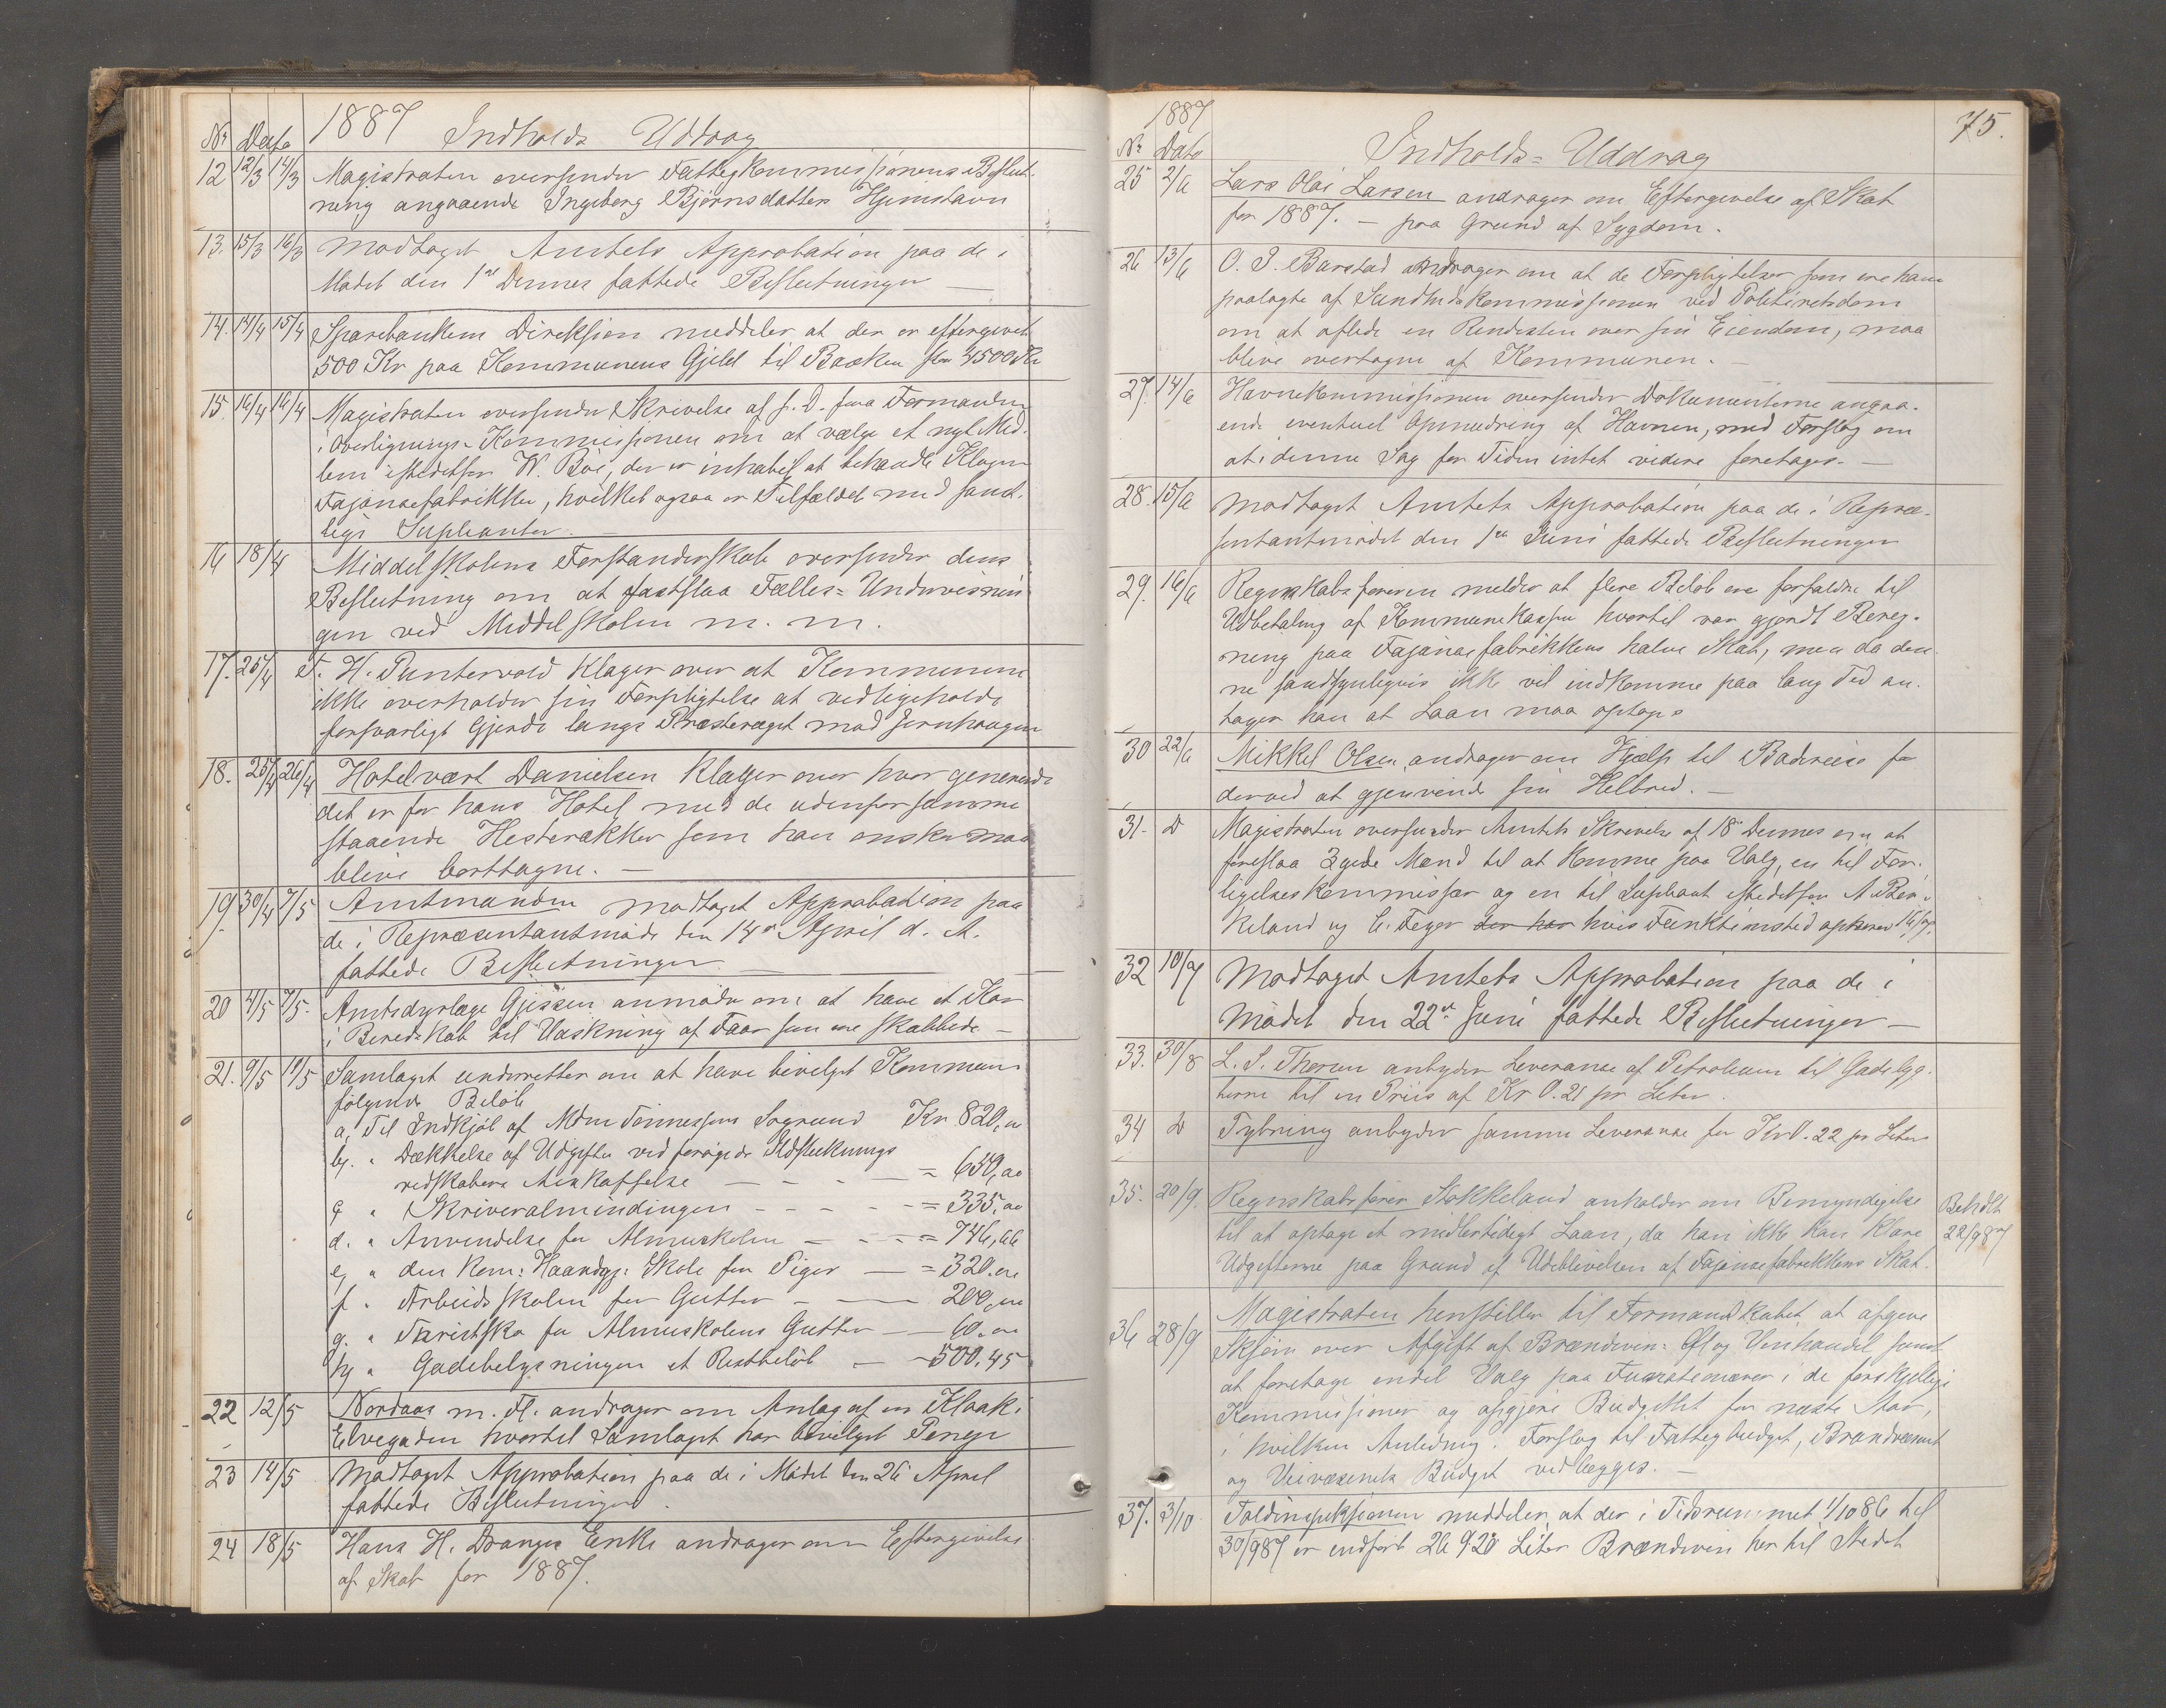 1887 Indholds Uddrag
No Dato
12 12/3 14/3 Magistraten oversender Fattigkommissionens Beslut-
ning angaaende Ingeborg Bjørnsdatters Hjemstavn
13. 15/3 16/3 Modtaget Amtets Approbation paa de i
Mødet den 1ste Dennes fattede Beslutninger —
14. 14/4 15/4 Sparebankens Direksion meddeler at der er eftergivet
500 Kr paa Kommunens Gjeld til Banken stor 4500 Kr
15. 16/4 16/4 Magistraten oversender Skrivelse af s. D. fra Formanden
i Overlignings-Kommissionen om at vælge et nyt Med-
lem istedetfor W. Bøe, der er inhabil at behandle Klagen
Fajansefabrikken, hvilket ogsaa er Tilfældet med samt-
lige Supleanter.
16 18/4 Middelskolens Forstanderskab oversender dens
Beslutning om at fastslaa Fælles-Undervisnin-
gen ved Middelskolen m. m.
17. 25/4 T. H. Puntervold klager over at Kommunen
ikke overholder sin Forpligtelse at vedligeholde
forsvarligt Gjerde langs Præsteræget mod Jernhaugen
18. 25/4 26/4 Hotelvært Danielsen klager over hvor generende
det er for hans Hotel med de udenfor samme
staaende Hesterækker som han ønsker maa
blive borttagne. —
19. 30/4 7/5 Amtmanden modtaget Approbation paa
de i Repræsentantmøde den 14de April d. A.
fattede Beslutninger —
20 4/5 7/5. Amtsdyrlæge Gjessen anmoder om at have et Kar
i Beredskab til Vaskning af Faar som ere skabbede —
21. 9/5 10/5 Samlaget underretter om at have bevilget Kommunen
følgende Beløb
a, Til Indkjøb af Mdm Tønnessens Sogrund Kr 820,00
b. " Dækkelse af Udgifter ved forøgede Ildslukningsr
redskabers Anskaffelse — - - - — = 650,00
c " Skriveralmindingen - - - - = 335,00
d. " Anvendelse for Almuskolen — - - = 746,66
e, " den kom: Haandgj: Skole for Piger — = 320.00
f. " Arbeidsskolen for Gutter - — 200,00
g. " Turistsko for Almuskolens Gutter — 60.00
h, " Gadebelysningen et Restbeløb — - 500.45
22 12/5 Nordaas m. Fl. andrager om Anlæg af en Kloak i
Elvegaden hvortil Samlaget har bevilget Penge
23 14/5 Modtaget Approbation paa de i Mødet den 26 April
fattede Beslutninger.
24 18/5 Hans H. Dranges Enke andrager om Eftergivelse
af Skat for 1887.
1887 75.
No Dato Indholds-Uddrag
25 2/6 Lars Olai Larsen andrager om Eftergivelse af Skat
for 1887. — paa Grund af Sygdom.
26 13/6 O. I. Barstad andrager om at de Forpligtelser som ere ham
paalagte af Sundhedskommissionen ved Politiretsdom
om at aflede en Rendesten over sin Eiendom, maa
blive overtagne af Kommunen.
27. 14/6 Havnekommissionen oversender Dokumenterne angaa-
ende eventuel Opmudring af Havnen, med Forslag om
at i denne Sag for Tiden intet videre foretages. —
28. 15/6 Modtaget Amtets Approbation paa de i Repræ-
sentantmødet den 1ste Juni fattede Beslutninger
29. 16/6 Regnskabsføreren melder at flere Beløb ere forfaldne til
Udbetaling af Kommunekassen hvortil var gjordt Bereg-
ning paa Fajansefabrikkens halve Skat, men da den-
ne sandsynligvis ikke vil indkomme paa lang Tid an-
tager han at Laan maa optages
30 22/6 Mikkel Olsen andrager om Hjælp til Badereise for
derved at gjenvinde sin Helbred. —
31. D Magistraten oversender Amtets Skrivelse af 18de Dennes om at
foreslaa 3 gode Mænd til at komme paa Valg, en til For-
ligelseskommissær og en til Supleant istedetfor A. Ber-
keland og E. Feyer der har hvis Funktionstid ophører 16/8 87.
32 10/7 Modtaget Amtets Approbation paa de i
Mødet den 22de Juni fattede Beslutninger —
33. 30/8 L. S. Thorsen anbyder Leveranse af Petroleum til Gadelyg-
terne til en Priis af Kr 0.21 pr Liter.
34 D Tybring anbyder samme Leveranse for Kr 0.22 pr Liter
35. 20/9. Regnskabsfører Stokkeland anholder om Bemyndigelse
til at optage et midlertidigt Laan, da han ikke kan klare
Udgifterne paa Grund af Udeblivelsen af Fajansefabrikkens Skat.
Behdlt
22/9 87
36 28/9 Magistraten henstiller til Formandskabet at afgive
Skjøn over Afgift af Brændevin- Øl og Vinhandel, samt
at foretage endel Valg paa Funktionærer i de forskjellige
Kommissioner og afgjøre Budgettet for næste Aar,
i hvilken Anledning. Forslag til Fattigbudget, Brandvæsenet
og Veivæsenets Budget vedlægges. —
37. 3/10 Toldinspeksionen meddeler at der i Tidsrummet 1/10 86 til
30/9 87 er indført 26 920 Liter Brændevin her til Stedet